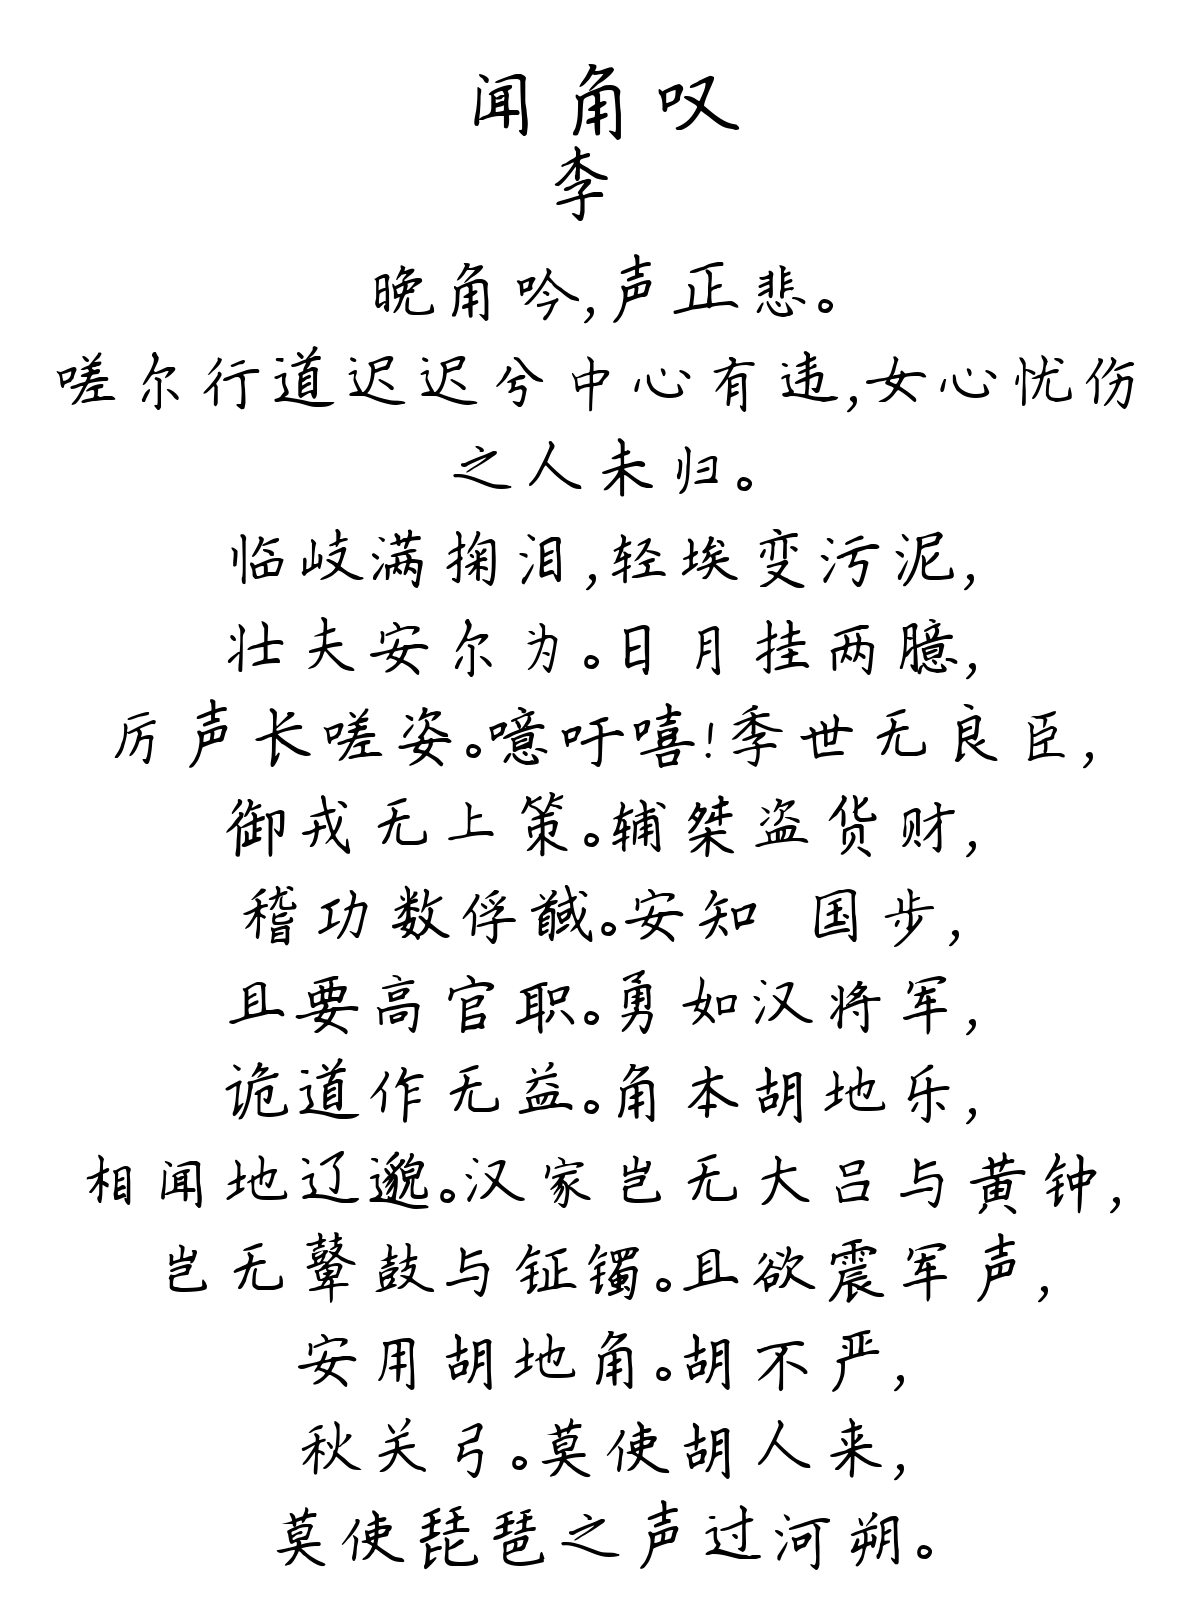 闻角叹
李
晚角吟,声正悲。
嗟尔行道迟迟兮中心有违,女心忧伤
之人未归。
临岐满掬泪,轻埃变污泥,
壮夫安尔为。日月挂两臆,
厉声长嗟姿。噫吁嘻!季世无良臣,
御戎无上策。辅桀盗货财,
稽功数俘馘。安知 国步,
且要高官职。勇如汉将军,
诡道作无益。角本胡地乐,
相闻地辽邈。汉家岂无大吕与黄钟,
岂无鼙鼓与钲镯。且欲震军声,
安用胡地角。胡不严,
秋关弓。莫使胡人来,
莫使琵琶之声过河朔。